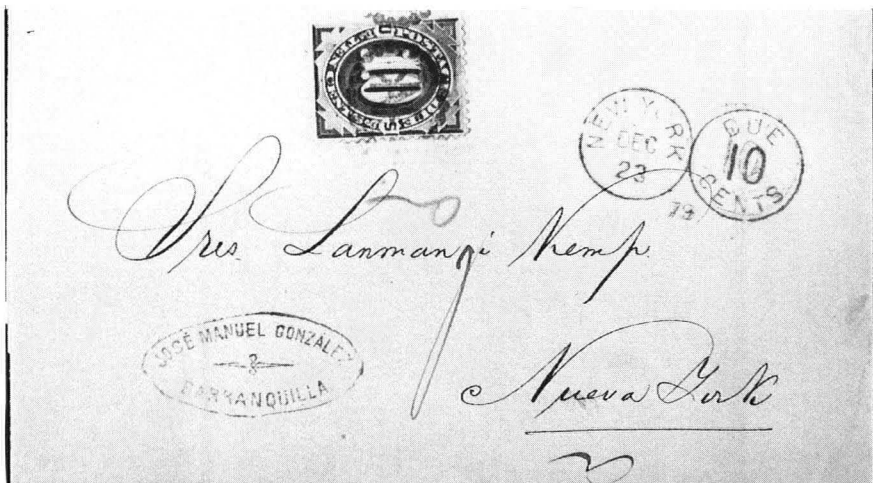 POSTAGE DUE
10
NEW YORK
DEC
23
79
DUE
10
CENTS
Sres Lanman i Kemp
JOSÉ MANUEL GONZÁLEZ
BARRANQUILLA
Nueva York